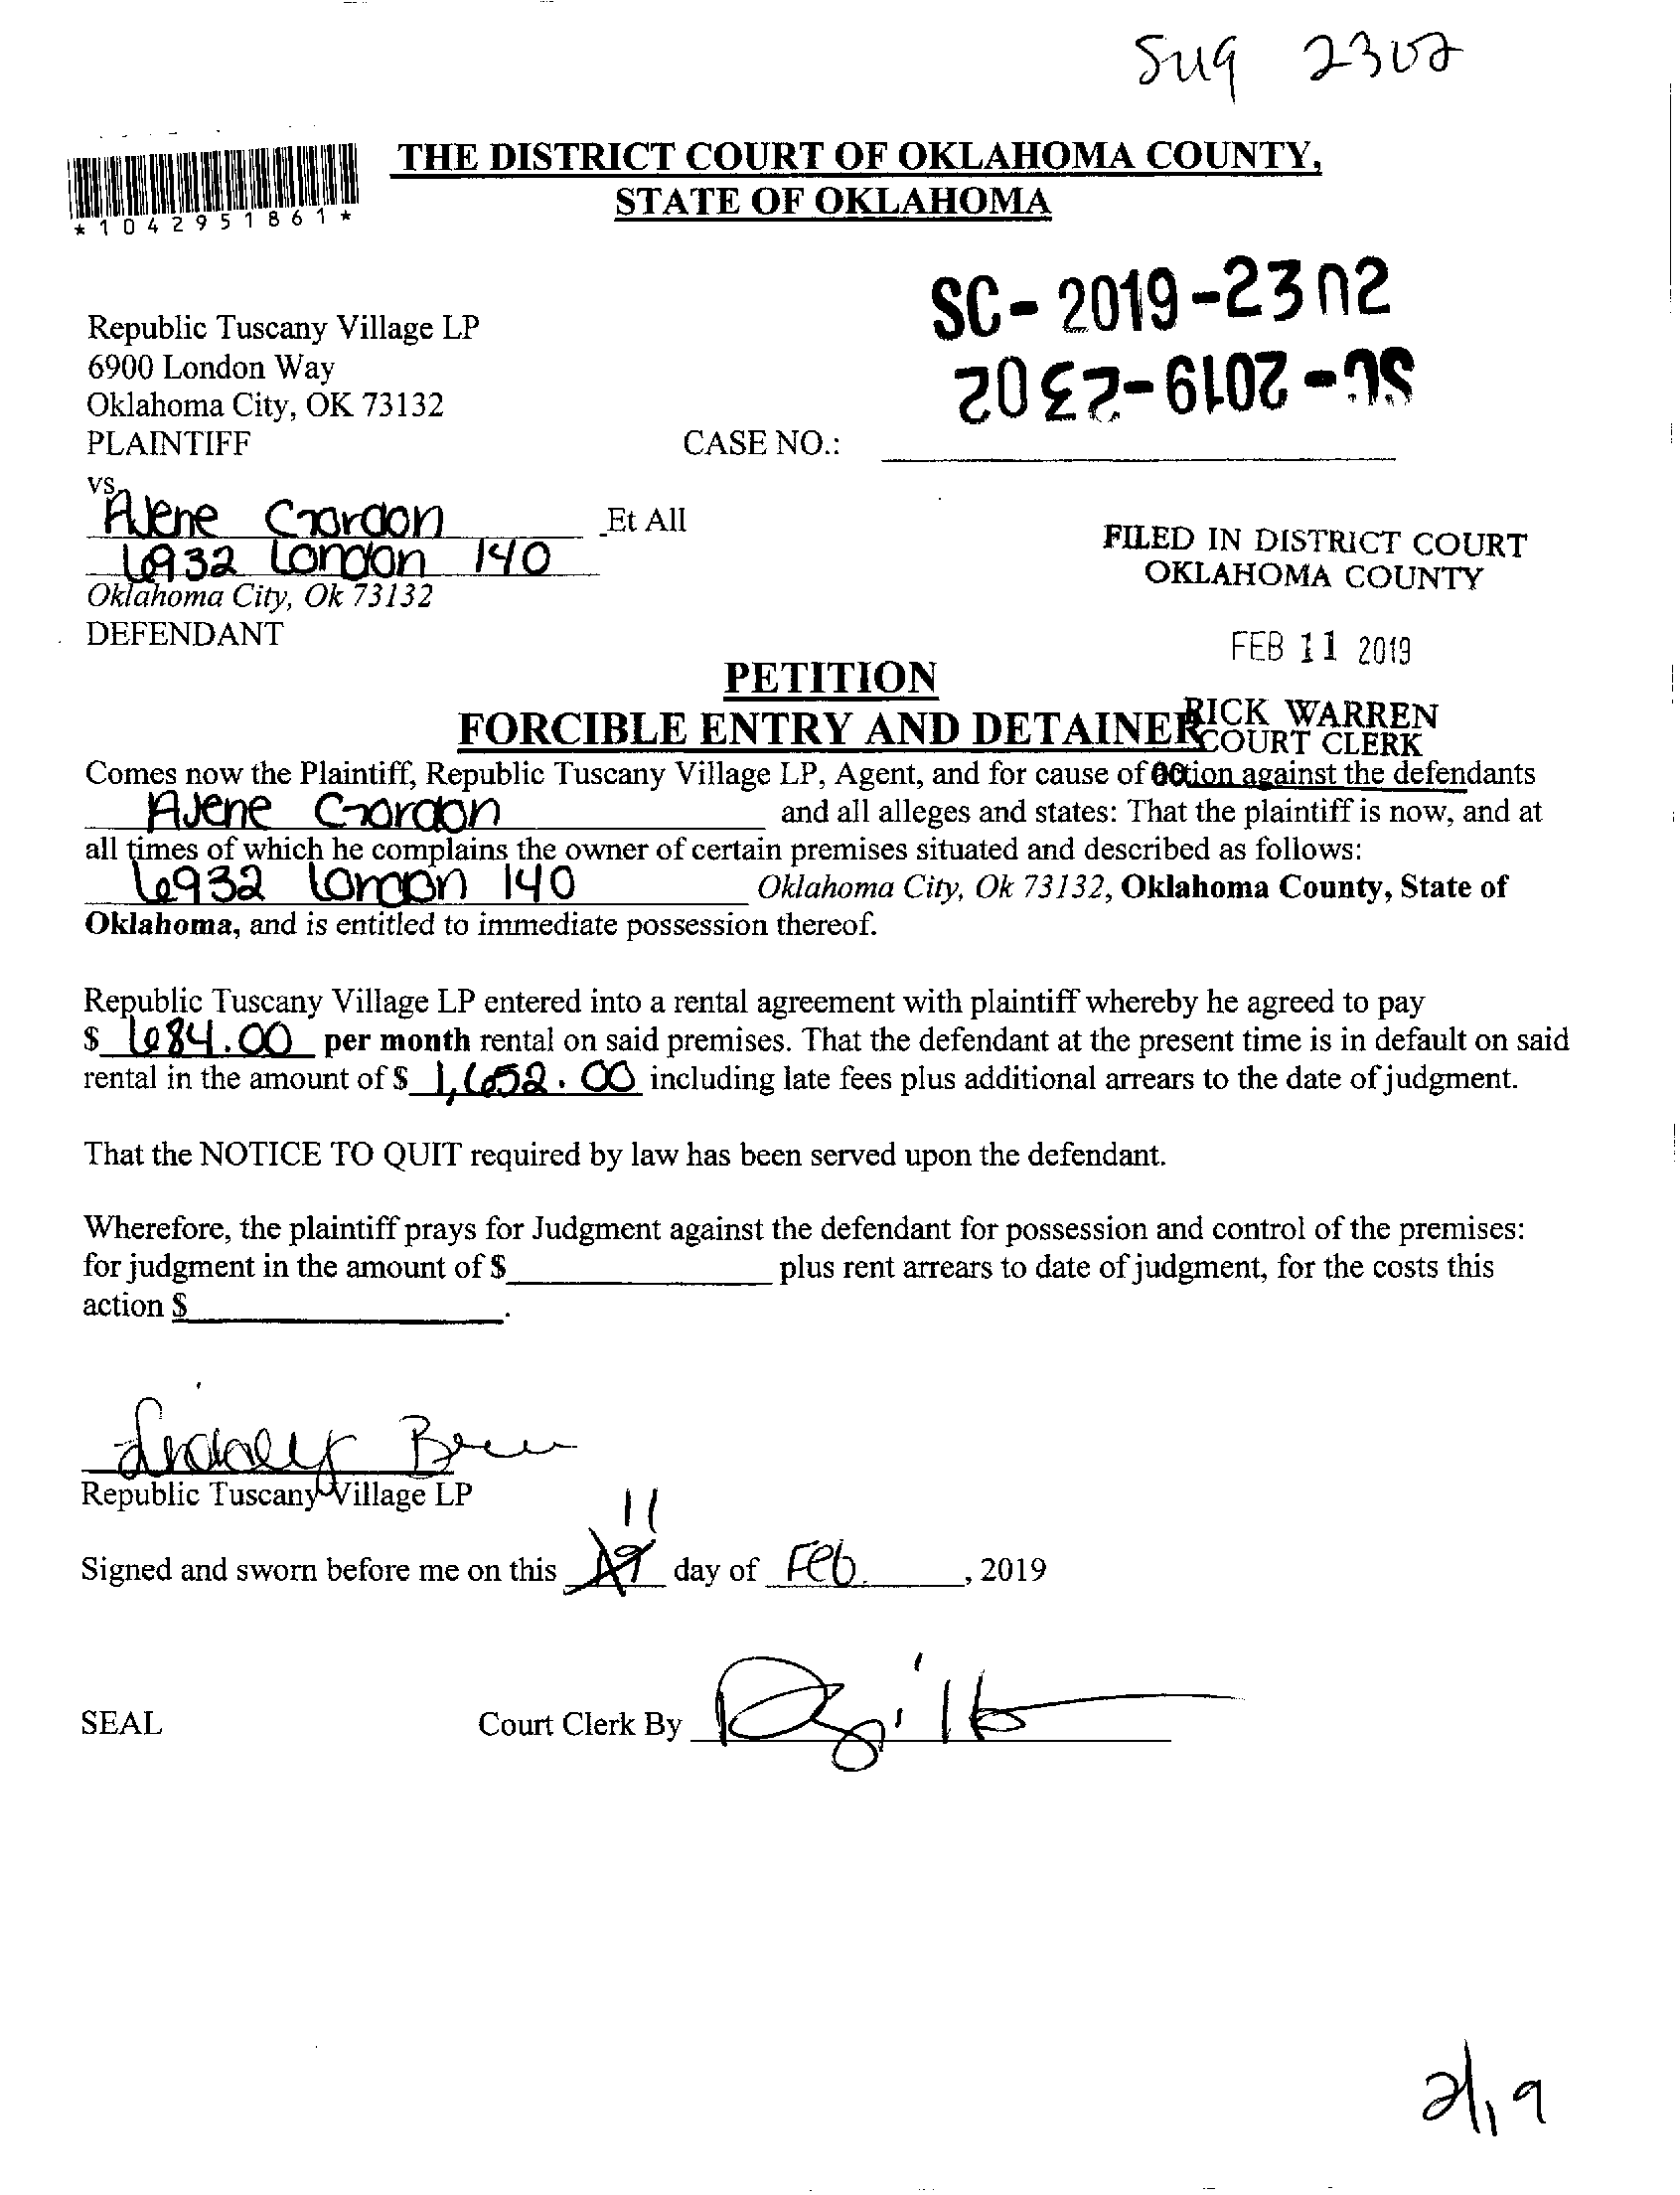 2302
THE DISTRICT COURT OF OKLAHOMA COUNTY,
STATE OF OKLAHOMA
*1042951861*
SC-2019-2302
SC-2019-2302
Republic Tuscany Village LP
6900 London Way
Oklahoma City, OK 73132
PLAINTIFF
CASE NO.:
vs.
AJene Gordon Et All
6932 London 140
Oklahoma City, Ok 73132
DEFENDANT
FILED IN DISTRICT COURT
OKLAHOMA COUNTY
FEB 11 2019
RICK WARREN
COURT CLERK
PETITION
FORCIBLE ENTRY AND DETAINER
Comes now the Plaintiff, Republic Tuscany Village LP, Agent, and for cause of action against the defendants
AJene Gordon and all alleges and states: That the plaintiff is now, and at
all times of which he complains the owner of certain premises situated and described as follows:
6932 London 140 Oklahoma City, Ok 73132, Oklahoma County, State of
Oklahoma, and is entitled to immediate possession thereof.
Republic Tuscany Village LP entered into a rental agreement with plaintiff whereby he agreed to pay
$ 684.00 per month rental on said premises. That the defendant at the present time is in default on said
rental in the amount of $ 1,652.00 including late fees plus additional arrears to the date of judgment.
That the NOTICE TO QUIT required by law has been served upon the defendant.
Wherefore, the plaintiff prays for Judgment against the defendant for possession and control of the premises:
for judgment in the amount of $ plus rent arrears to date of judgment, for the costs this
action $ .
Republic Tuscany Village LP
11
Signed and sworn before me on this day of Feb. , 2019
SEAL
Court Clerk By
2/19